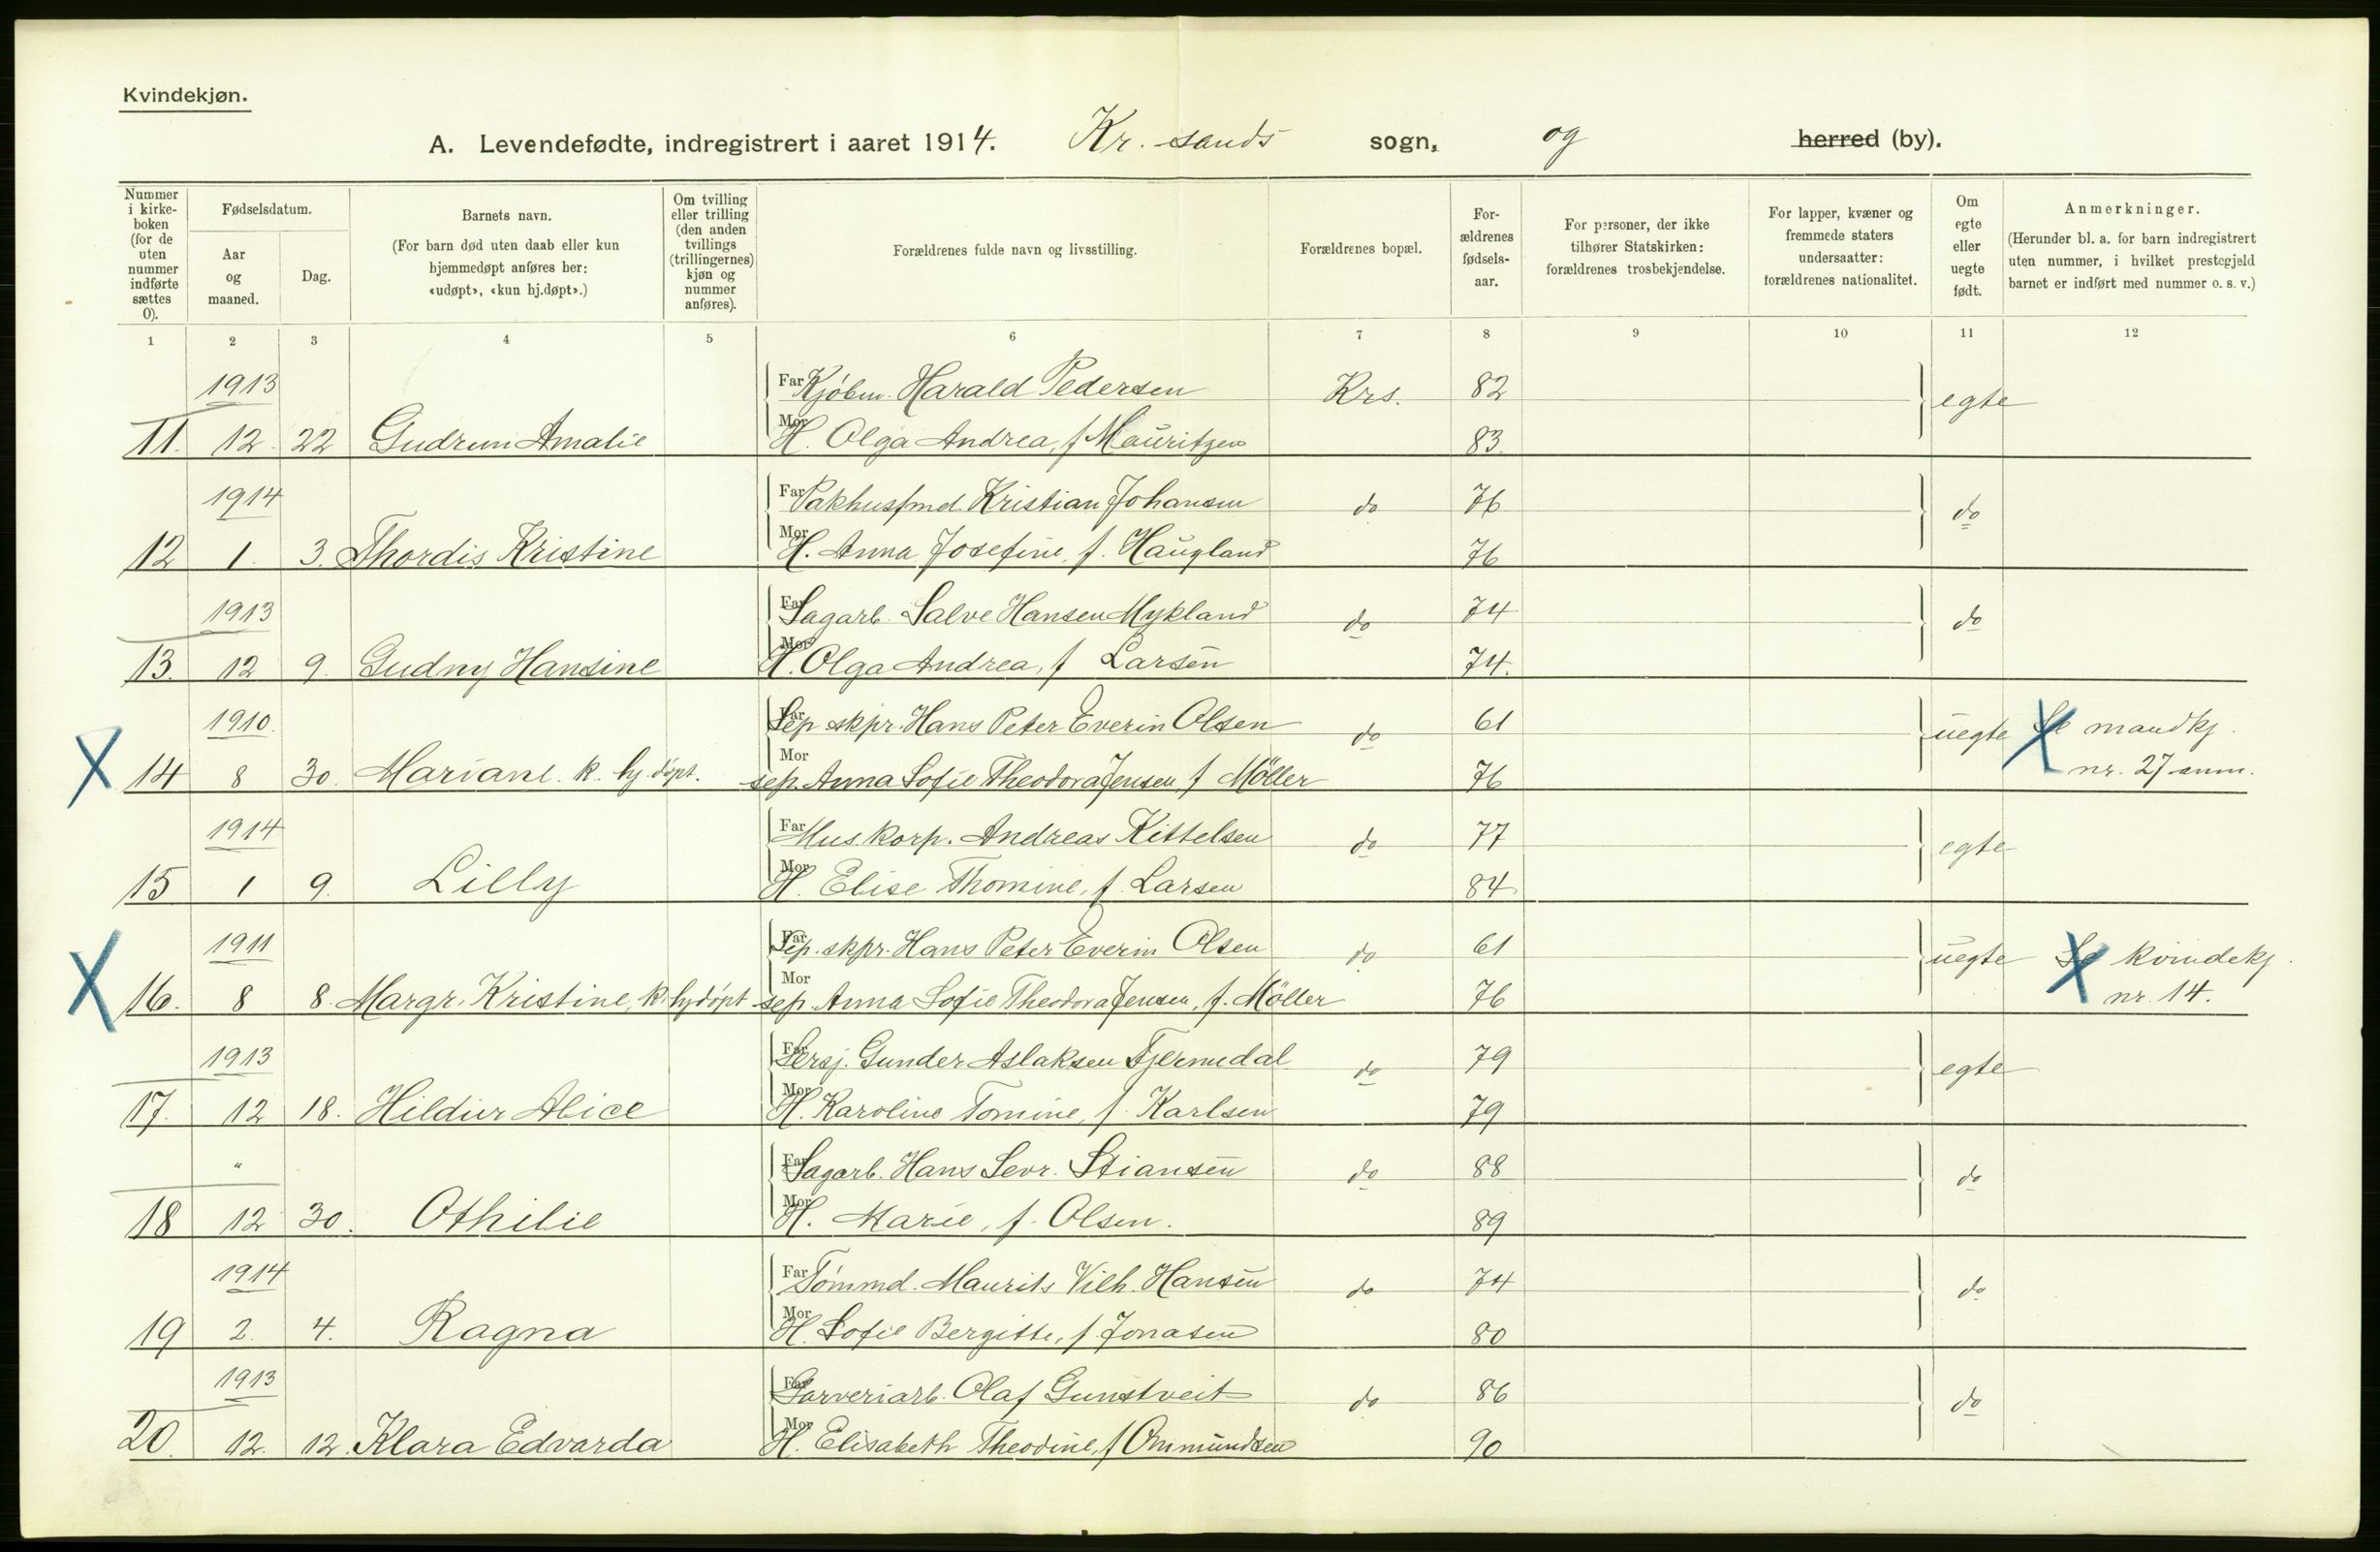 Kvindekjøn.
A. Levendefødte, indregistrert i aaret 1914. Kr. sands sogn, og herred (by).
Nummer i kirkeboken (for de uten nummer indførte sættes 0).
Fødselsdatum.
Aar og maaned.
Dag.
Barnets navn.
(For barn død uten daab eller kun hjemmedøpt anføres her: «udøpt», «kun hj.døpt».)
Om tvilling eller trilling (den anden tvillings (trillingernes) kjøn og nummer anføres).
Forældrenes fulde navn og livsstilling.
Forældrenes bopæl.
Forældrenes fødselsaar.
For personer, der ikke tilhører Statskirken: forældrenes trosbekjendelse.
For lapper, kvæner og fremmede staters undersaatter: forældrenes nationalitet.
Om egte eller uegte født.
Anmerkninger.
(Herunder bl. a. for barn indregistrert uten nummer, i hvilket prestegjeld barnet er indført med nummer o. s. v.)
1 2 3 4 5 6 7 8 9 10 11 12
1913 Far Kjøbm. Harald Pedersen Krs. 82 egte
11. 12 22 Gudrun Amalie Mor H. Olga Andrea, f Mauritzen 83.
1914 Far Pakhusfmd. Kristian Johansen do 76 do
12 1. 3. Thordis Kristine Mor H. Anna Josefine, f. Haugland 76
1913 Far Sagarb. Salve Hansen Mykland do 74 do
13. 12 9. Gudny Hansine Mor H. Olga Andrea, f Larsen 74.
1910. Far Sep. skpr. Hans Peter Everin Olsen do 61 uegte Se mandkj.
X 14 8 30. Mariane. k. hj. døpt. Mor sep. Anna Sofie Theodora Jensen, f Möller 76 nr. 27 anm.
1914 Far Mus. korp. Andreas Kittelsen do 77 egte
15 1 9. Lilly Mor H. Elise Thomine, f. Larsen 84
1911 Far Sep. skpr. Hans Peter Everin Olsen do 61 uegte Se kvindekj.
X 16. 8 8. Margr. Kristine, k. hj døpt Mor sep. Anna Sofie Theodora Jensen, f. Möller 76 nr. 14.
1913 Far Sersj. Gunder Aslaksen Fjermedal do 79 egte
17. 12 18. Hildur Alice Mor H. Karoline Tomine, f. Karlsen 79
" Far Sagarb. Hans Sevr. Stiansen do 88 do
18 12 30. Othilie Mor H. Marie, f. Olsen. 89
1914 Far Tømmd. Maurits Vilh. Hansen do 74 do
19 2. 4. Ragna Mor H. Sofie Bergitte, f. Jonasen 80
1913 Far Garveriarb. Olaf Gunstveit do 86 do
20. 12. 12. Klara Edvarda Mor H. Elisabeth Theodine, f Ommundsen 90